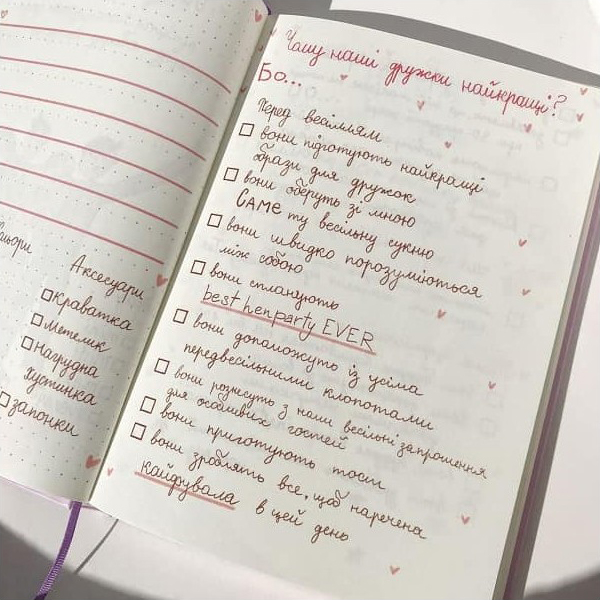 Аксесуари
Краватка
Метелик
Нагрудна
хустинка
запонки
Чому наші дружки найкращі?
Бо...
Перед весіллям
вони підготують найкращі
образи для дружок
вони оберуть зі мною
САМЕ ту весільну сукню
вони швидко порозуміються
між собою
вони спланують
best henparty EVER
вони допоможуть із усіма
передвесільними клопотами
вони рознесуть з нами весільні запрошення
для особливих гостей
вони приготують тост
вони зроблять все, щоб наречена
кайфувала в цей день